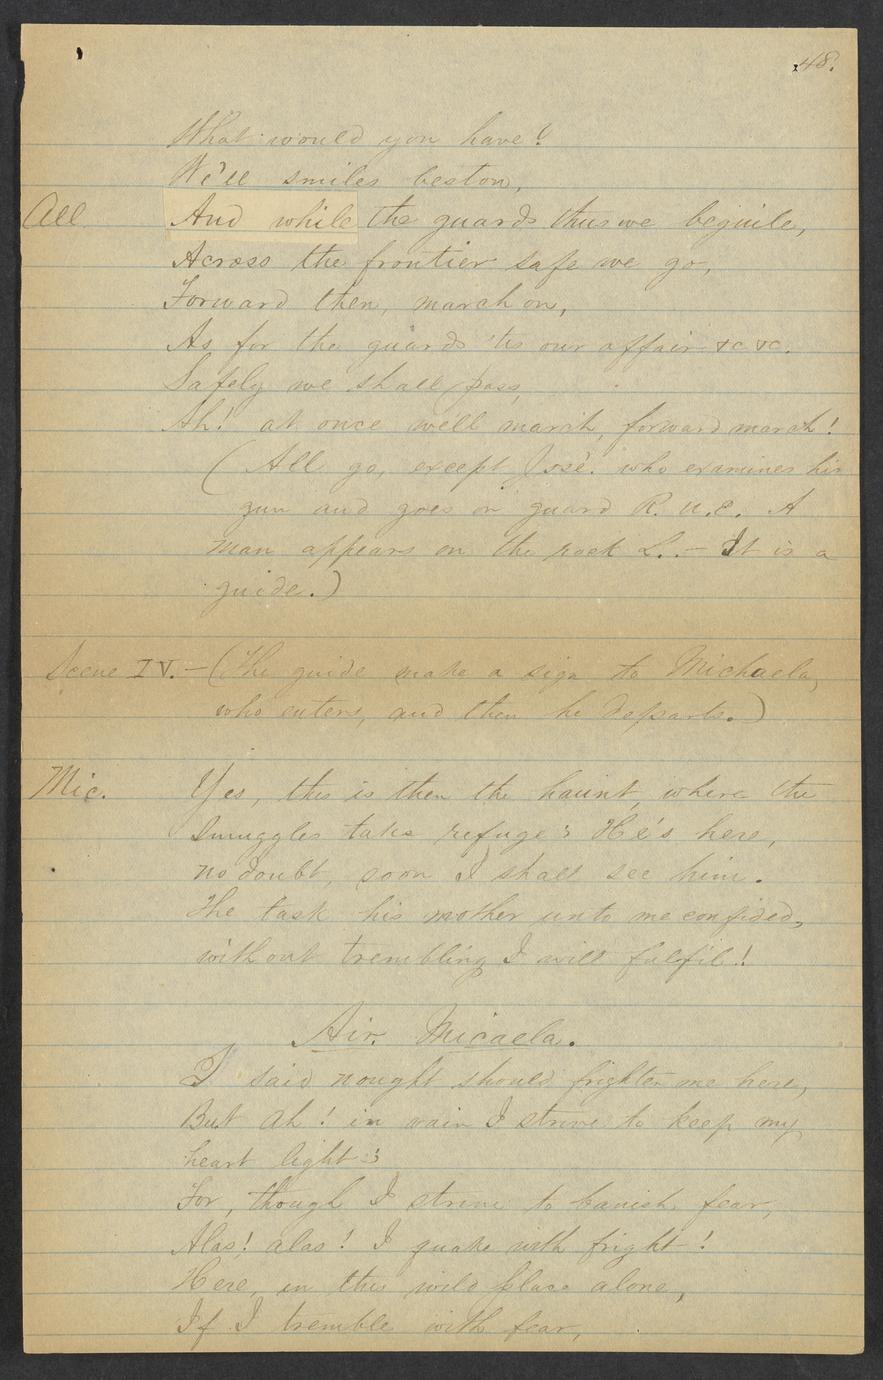 48.
What would you have?
We'll smiles bestow,
All And while the guards thus we beguile,
Across the frontier safe we go,
Forward then, march on,
As for the guards 'tis our affair &c &c.
Safely we shall pass,
Ah! at once we'll march, forward march!
(All go, except José. who examines his
gun and goes on guard R. U. E. A
man appears on the rock L. – It is a
guide.)
Scene IV. – (The guide make a sign to Michaela,
who enters, and then he departs.)
Mic. Yes, this is then the haunt, where the
smuggles take refuge; He's here,
no doubt, soon I shall see him.
The task his mother unto me confided,
without trembling I will fulfil!
Air. Micaela.
I said nought should frighten me here,
But ah! in vain I strive to keep my
heart light;
For, though I strive to banish fear,
Alas! alas! I quake with fright!
Here, in this wild place alone,
If I tremble with fear,